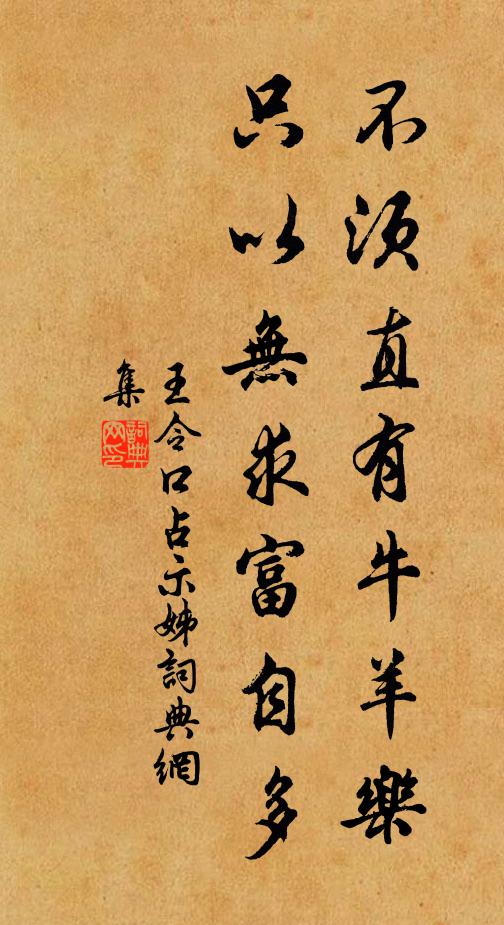 不須直有牛羊樂
只以無求富自多
王令口占示姊詞典網
集
詞典
网印